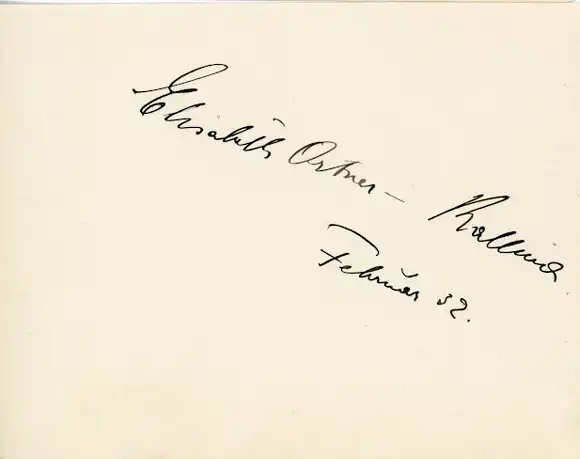 Elisabeth Ortner – Kallina
Februar 32.